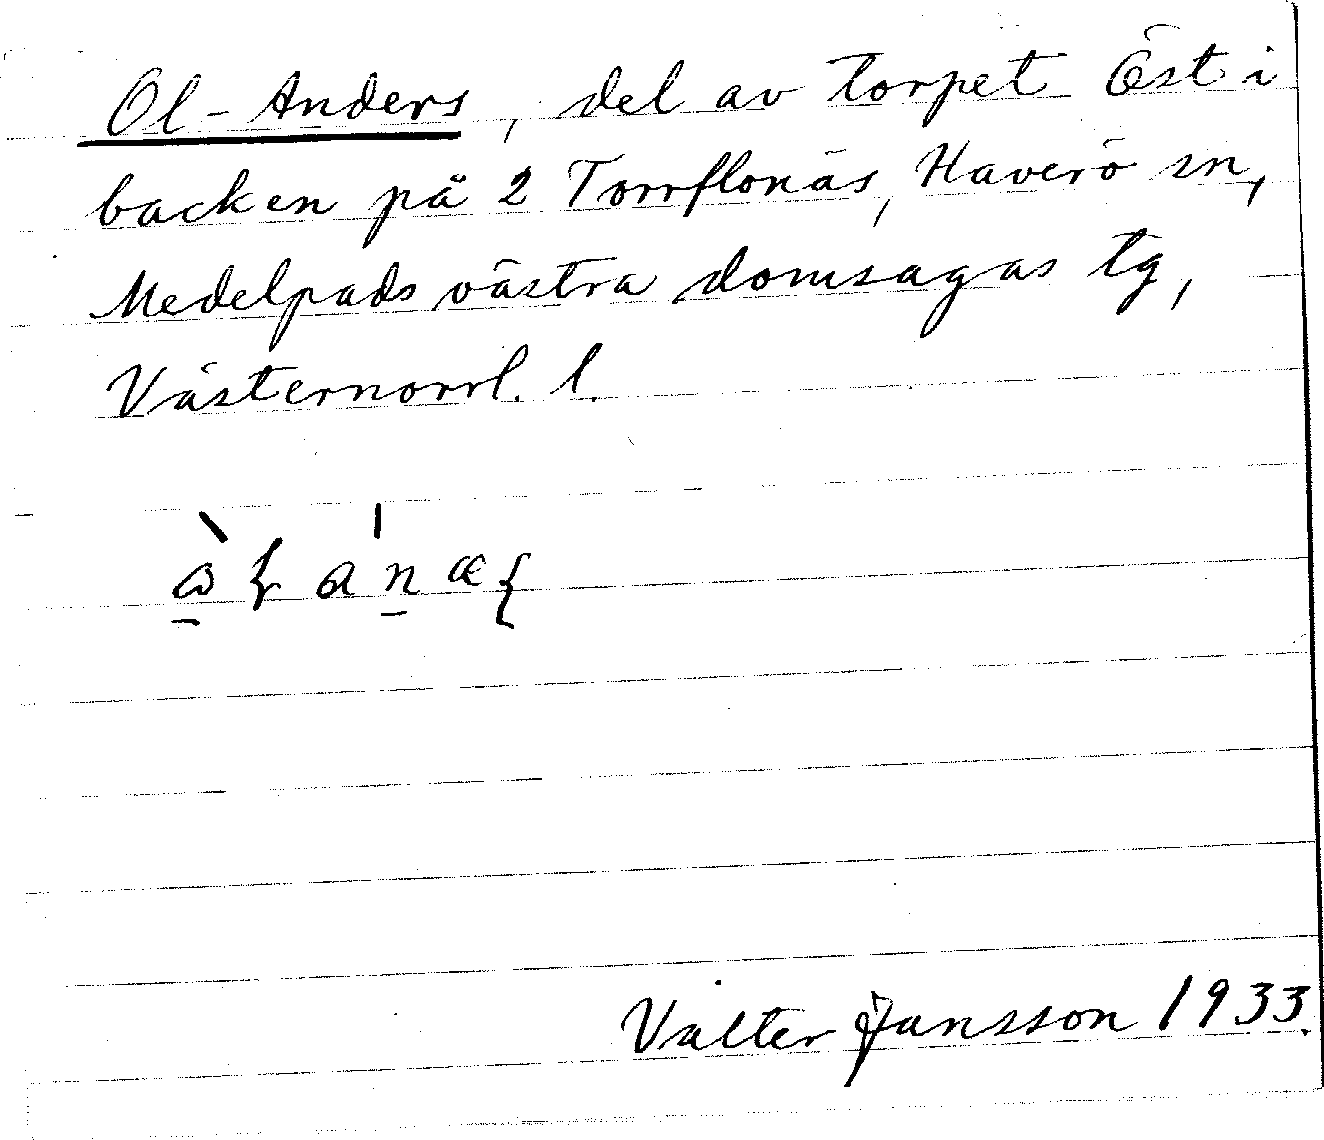 Ol-Anders, del av torpet Öst i
backen på 2 Torrflonäs, Haverö sn,
Medelpads västra domsagas tg,
Västernorrl. l.
Valter Jansson 1933.